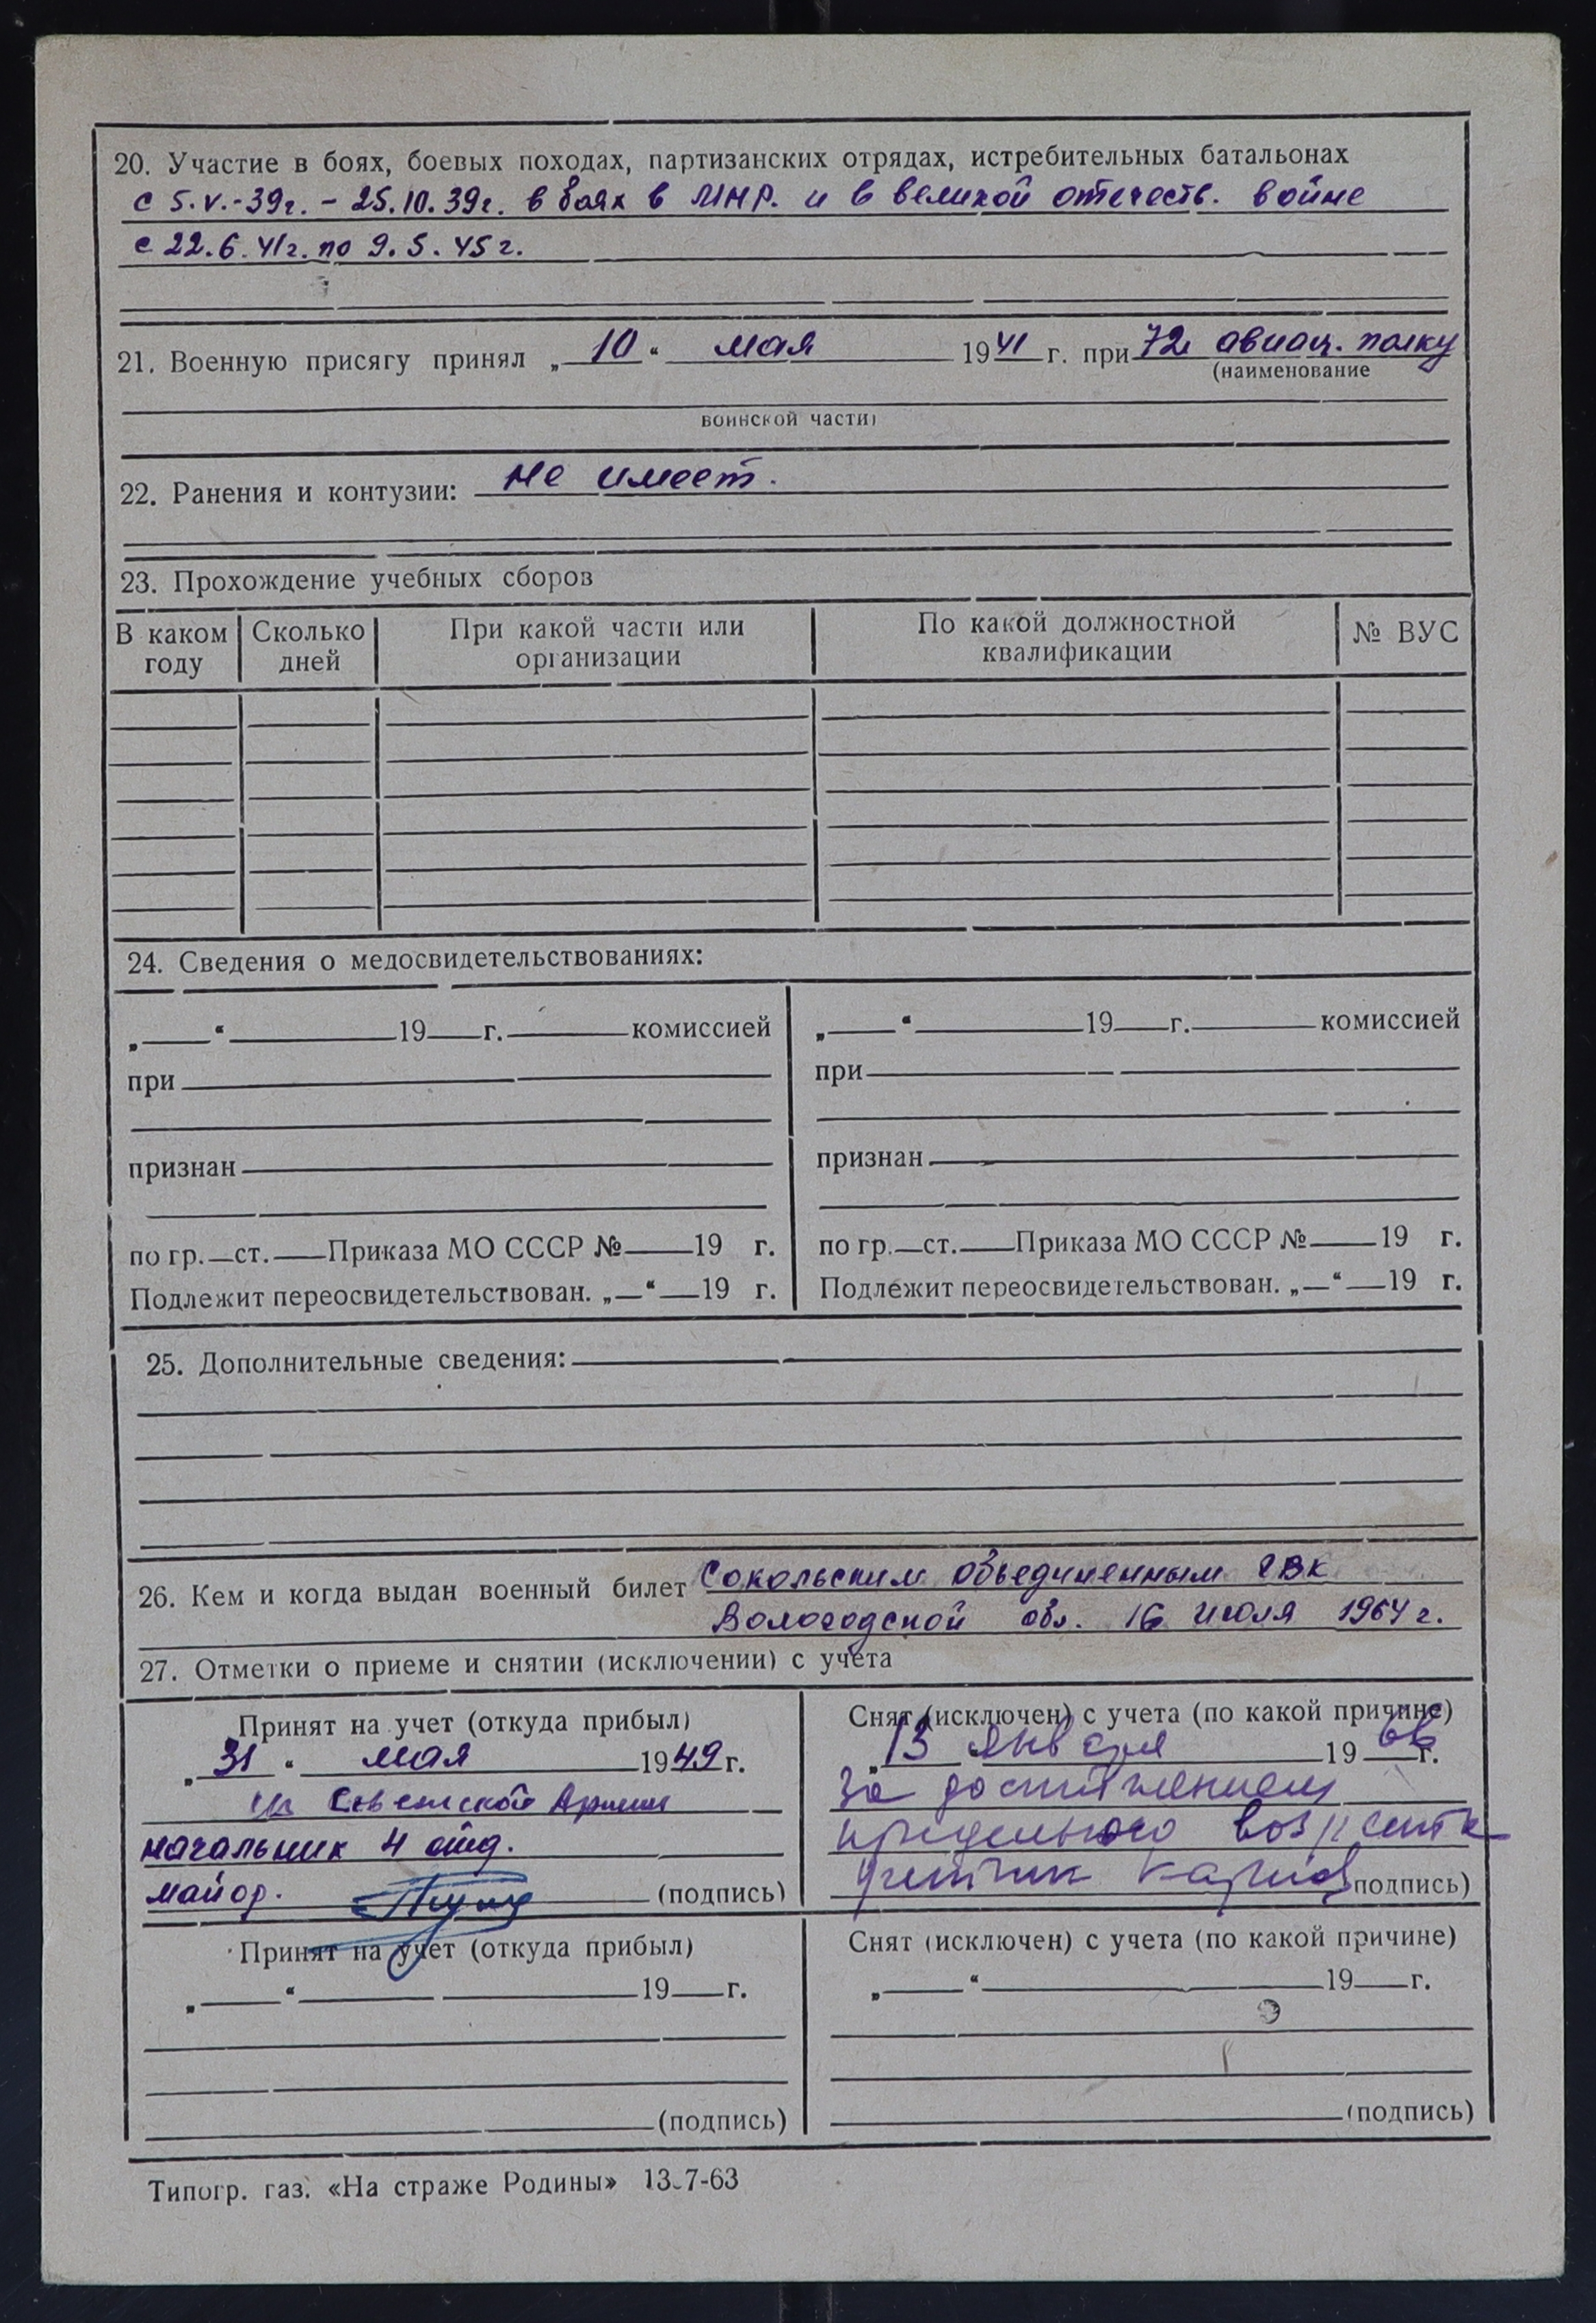 20. Участие в боях, боевых походах, партизанских отрядах, истребительных батальонах
с 5.V.-39г. - 25.10.39г. в боях в МНР. и в великой отечеств. войне
с 22.6.41г. по 9.5.45г.
21. Военную присягу принял „10“ мая 1941 г. при 72 авиац. полку
(наименование
воинской части)
22. Ранения и контузии: не имеет.
23. Прохождение учебных сборов
В каком году Сколько дней При какой части или организации По какой должностной квалификации № ВУС
24. Сведения о медосвидетельствованиях:
„ “ 19 г. комиссией
при
признан
по гр. ст. Приказа МО СССР № 19 г.
Подлежит переосвидетельствован. „ “ 19 г.
„ “ 19 г. комиссией
при
признан
по гр. ст. Приказа МО СССР № 19 г.
Подлежит переосвидетельствован. „ “ 19 г.
25. Дополнительные сведения:
26. Кем и когда выдан военный билет Сокольским объединенным ГВК
Вологодской обл. 16 июля 1964 г.
27. Отметки о приеме и снятии (исключении) с учета
Принят на учет (откуда прибыл)
„31“ мая 1949 г.
из Советской Армии
начальник 4 отд.
майор. (подпись)
Снят (исключен) с учета (по какой причине)
„13 января 1966 г.
За достижением
предельного возраста
(подпись)
Принят на учет (откуда прибыл)
„ “ 19 г.
(подпись)
Снят (исключен) с учета (по какой причине)
„ “ 19 г.
(подпись)
Типогр. газ. «На страже Родины» 13-7-63